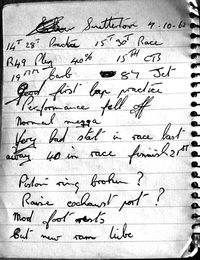 Snetterton 7-10-62
14T 28T Practice 15T 30T Race
R49 Plug 40% 15TH CTB
19mm Carb 84 Jet
Good first lap practice
Performance fell off
Normal
Very bad start in race last
away 40 in race finnish 21st
Piston ring broken?
Raise exhaust port?
Mod foot rests
Cut new ram tube